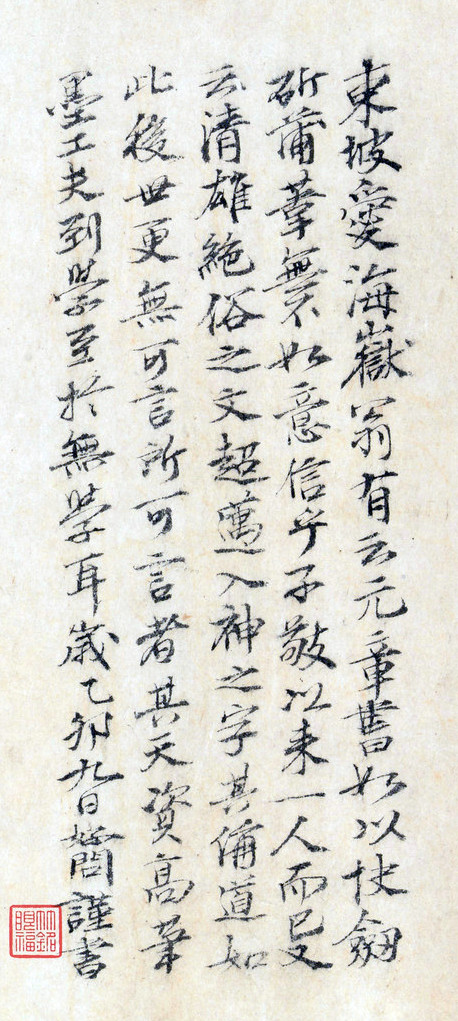 東坡愛海嶽翁有云元章書如以快劍
斫蒲葦無不如意信乎子敬以來一人而已又
云清雄絕俗之文超邁入神之字其偁道如
此後世更無可言所可言者其天資高筆
墨工夫到學至於無學耳歲乙卯九日好問謹書
竹銘眼福